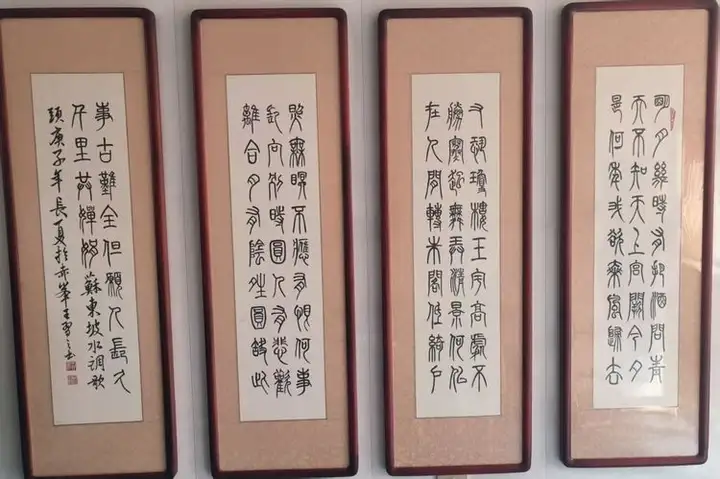 明月幾時有把酒問青
天不知天上宮闕今夕
是何年我欲乘風歸去
又恐瓊樓玉宇高處不
勝寒起舞弄清景何似
在人間轉朱閣低綺戶
照無眠不應有恨何事
長向別時圓人有悲歡
離合月有陰晴圓缺此
事古難全但願人長久
千里共嬋娟 蘇東坡水調歌
頭庚子年長夏於赤峯王